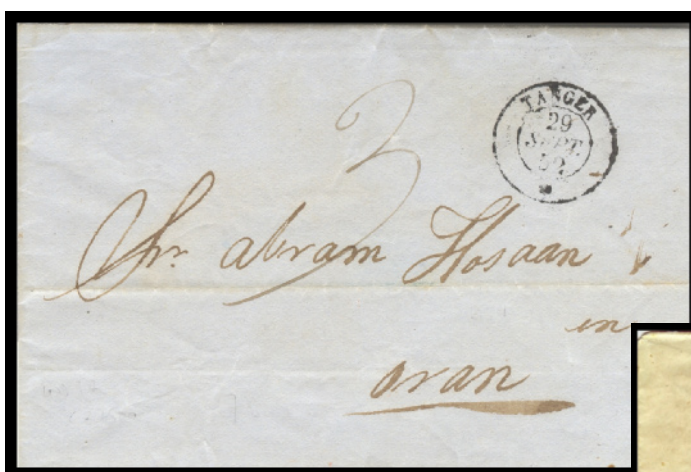 TANGER
29
SEPT.
52
3
Sr. abram Hosaan
in
oran